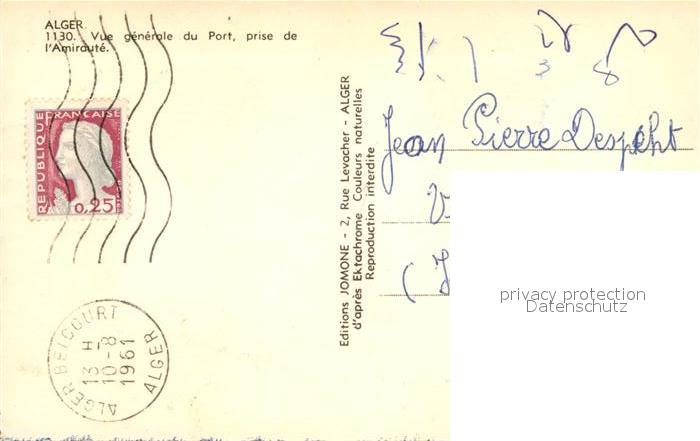 ALGER
1130. Vue générale du Port, prise de
l'Amirauté.
REPUBLIQUE FRANCAISE
0,25
ALGER BELCOURT
13 H
10-8
1961
ALGER
Editions JOMONE - 2, Rue Levacher - ALGER
d'après Ektachrome Couleurs naturelles
Reproduction interdite
Jean Pierre
privacy protection
Datenschutz